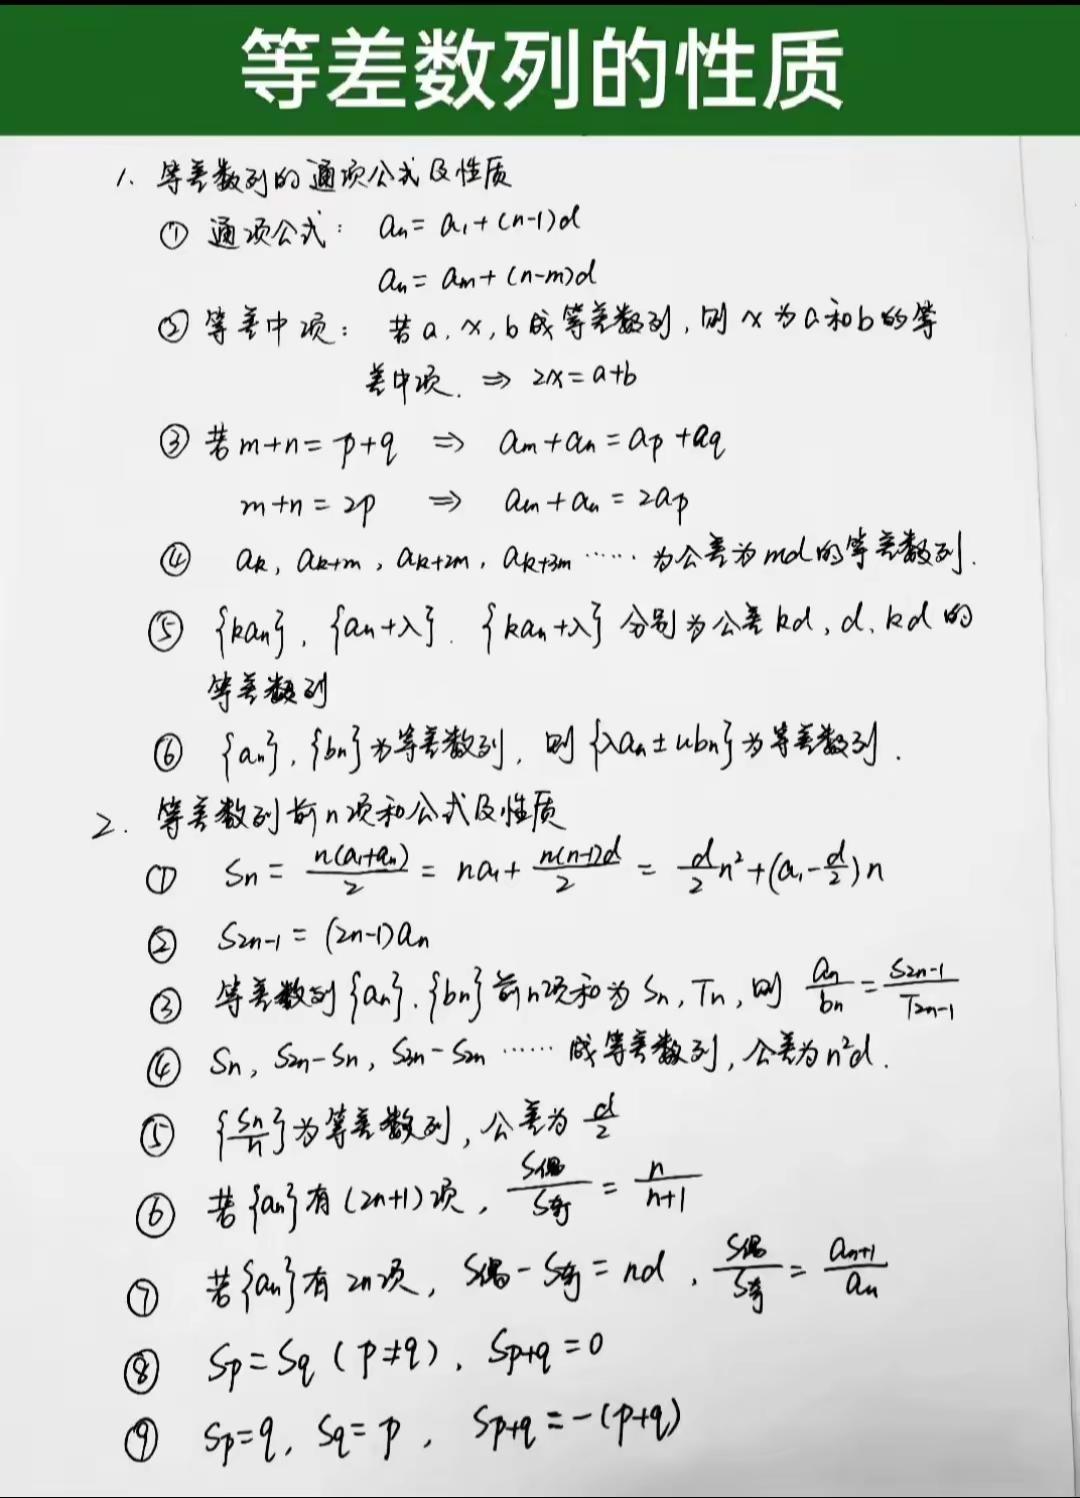 等差数列的性质
1. 等差数列的通项公式及性质
① 通项公式: aₙ = a₁ + (n-1)d
aₙ = aₘ + (n-m)d
② 等差中项: 若a, x, b成等差数列, 则x为a和b的等
差中项. ⇒ 2x = a+b
③ 若m+n = p+q ⇒ aₘ + aₙ = aₚ + a_q
m+n = 2p ⇒ aₘ + aₙ = 2aₚ
④ aₖ, aₖ₊ₘ, aₖ₊₂ₘ, aₖ₊₃ₘ …… 为公差为md的等差数列.
⑤ {kaₙ}, {aₙ+λ}. {kaₙ+λ} 分别为公差kd, d, kd的
等差数列
⑥ {aₙ}, {bₙ}为等差数列, 则{λaₙ ± ubₙ}为等差数列.
2. 等差数列前n项和公式及性质
① Sₙ = n(a₁+aₙ)/2 = na₁ + n(n-1)d/2 = d/2 n² + (a₁ - d/2)n
② S₂ₙ₋₁ = (2n-1)aₙ
③ 等差数列{aₙ}. {bₙ}前n项和为Sₙ, Tₙ, 则 aₙ/bₙ = S₂ₙ₋₁/T₂ₙ₋₁
④ Sₙ, S₂ₙ-Sₙ, S₃ₙ-S₂ₙ …… 成等差数列, 公差为n²d.
⑤ {Sₙ/n}为等差数列, 公差为 d/2
⑥ 若{aₙ}有(2n+1)项, S偶/S奇 = n/(n+1)
⑦ 若{aₙ}有2n项, S偶 - S奇 = nd, S偶/S奇 = aₙ₊₁/aₙ
⑧ Sₚ = S_q (p≠q), Sₚ₊q = 0
⑨ Sₚ = q, S_q = p, Sₚ₊q = -(p+q)